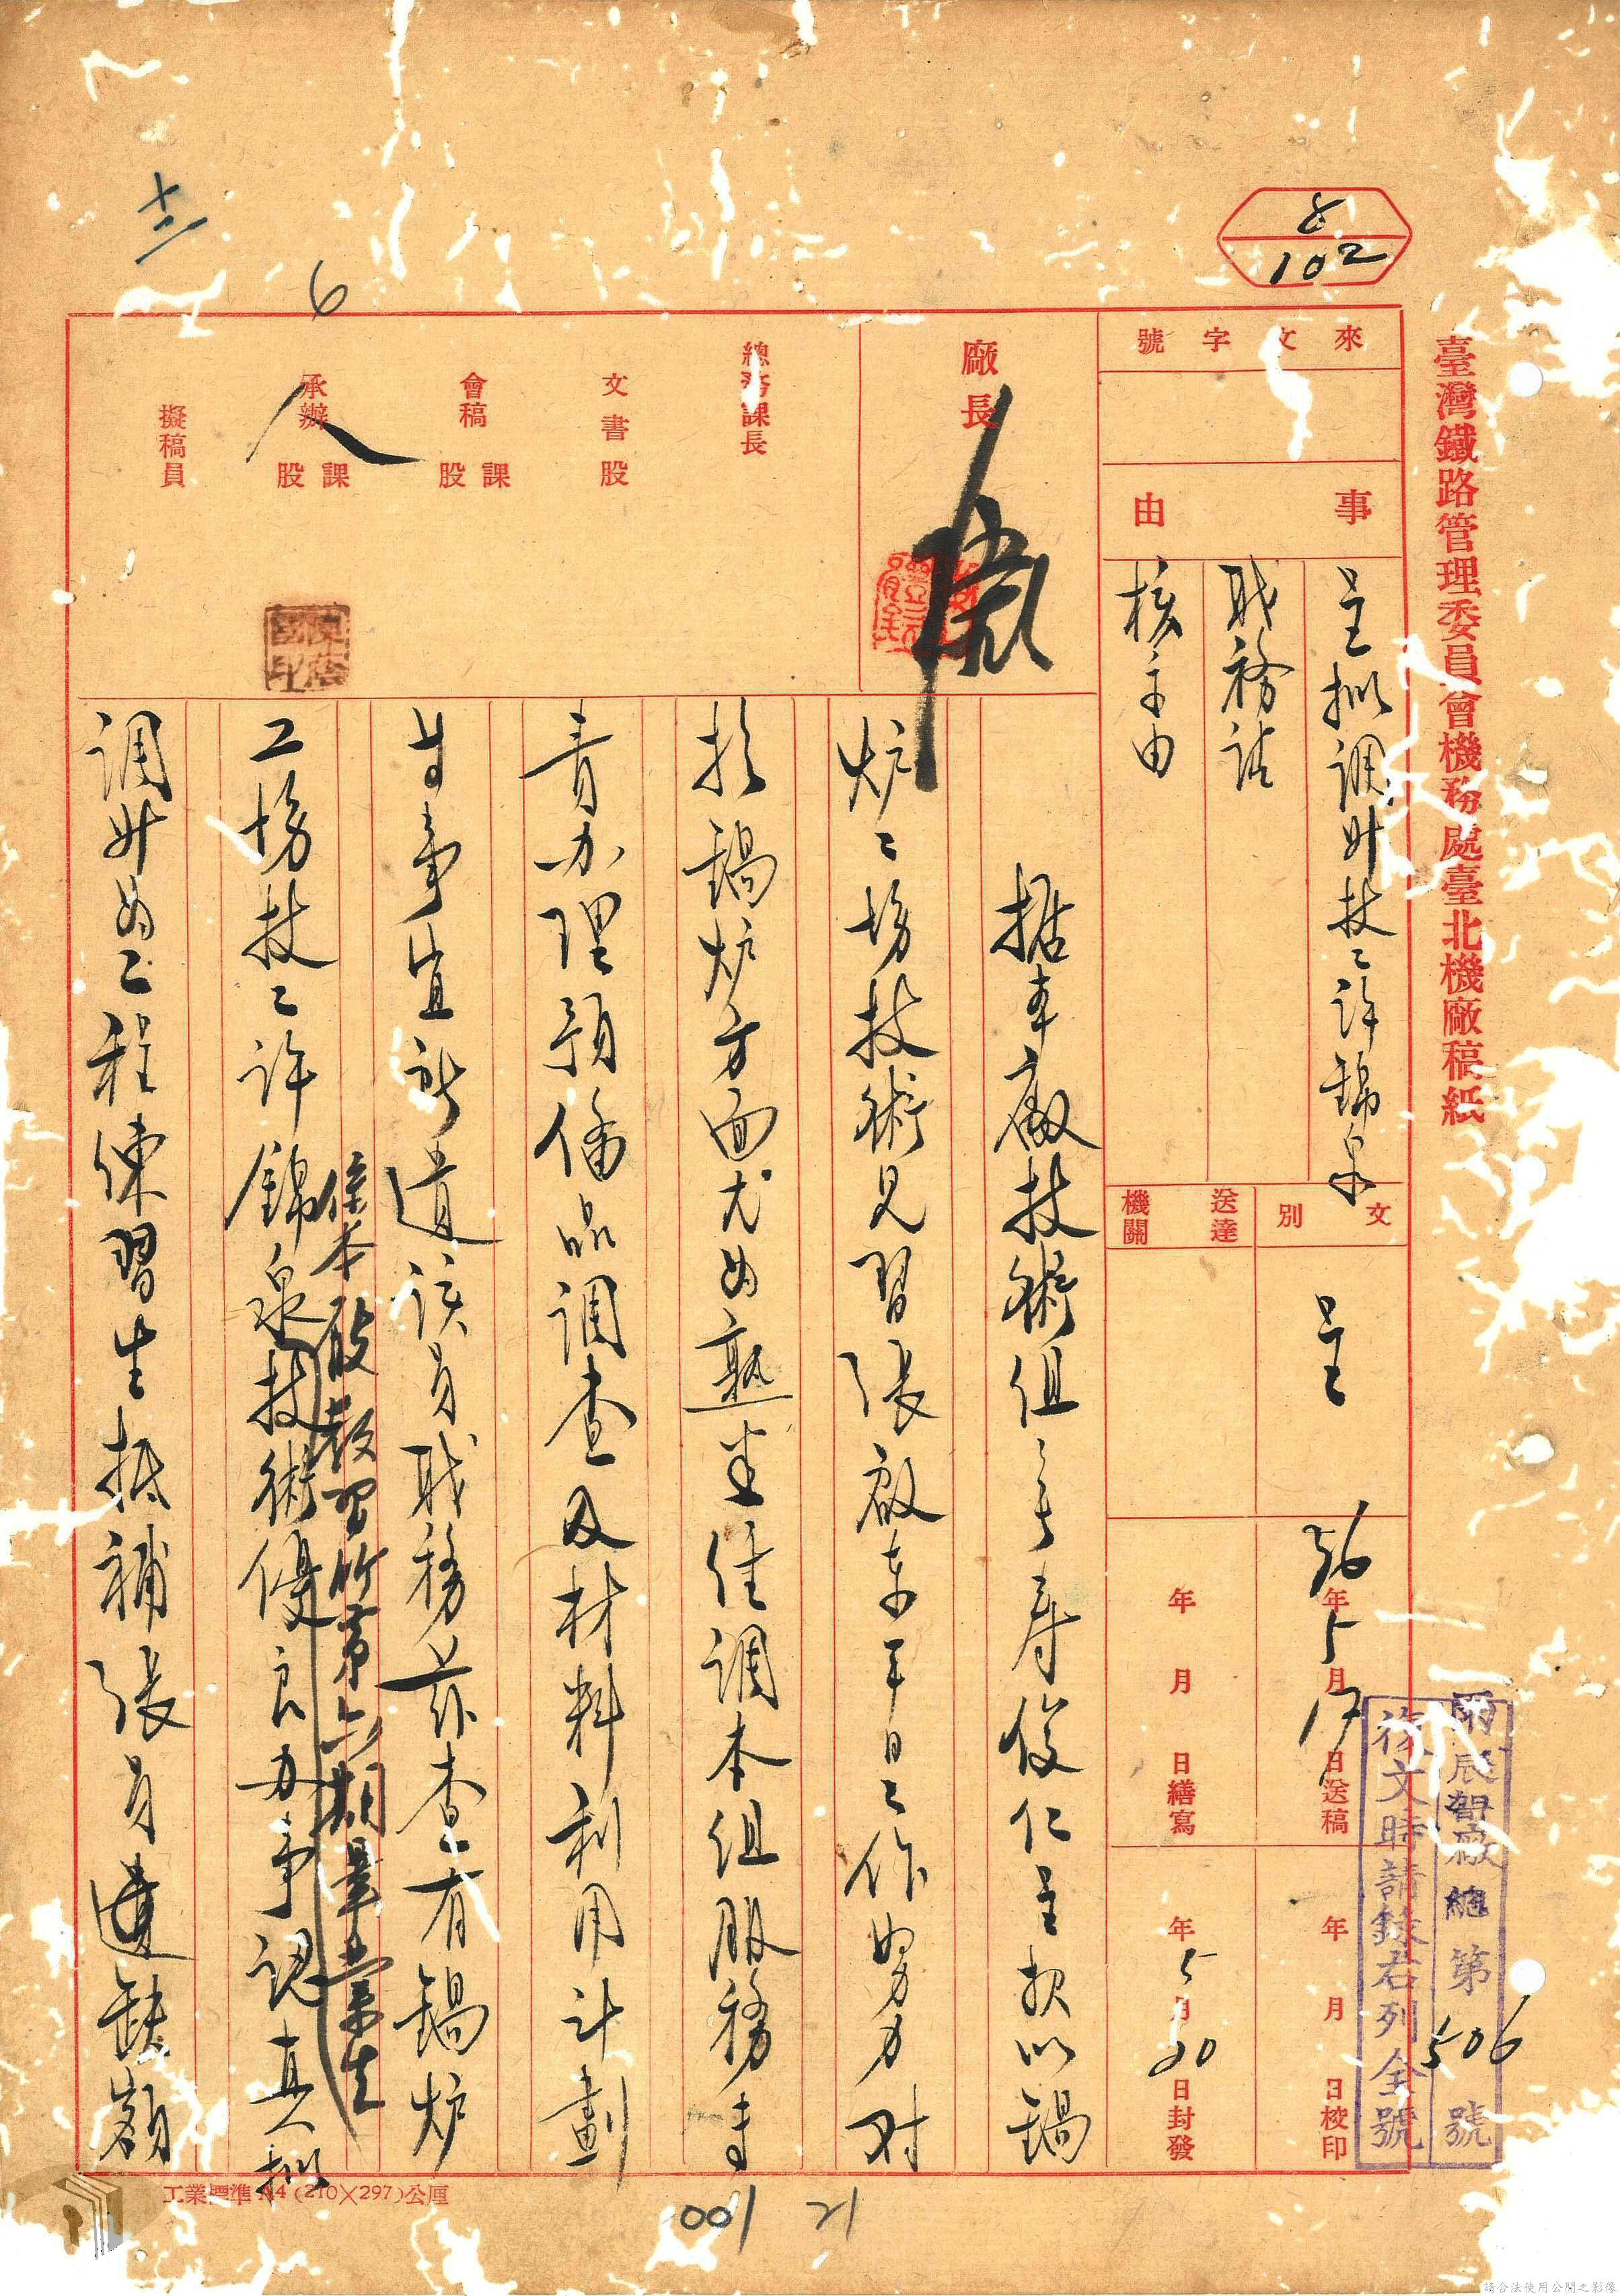 臺灣鐵路管理委員會機務處臺北機廠稿紙
8
102
來文字號
事由
呈擬調升技工許錦泉
職務請
核示由
文別
送達機關
呈
36年5月17日送稿
年月日繕寫
年月日校印
年5月20日封發
雨辰智廠總第506號
復文時請錄右列全號
廠長
總務課長
文書股
會稿課股
承辦課股
擬稿員
6
據本廠技術組主任壽俊仁呈報以鍋
炉工場技術見習張啟東平日工作努力對
於鍋炉方面尤為熟悉經調本組服務專
責办理預備品調查及材料利用計劃
等事宜所遺該員職務茲查有鍋炉
工場技工許錦泉技術優良办事認真擬
係本廠教習所第六期畢業生
調升為工程練習生抵補張員遺缺額
工業標準A4(210×297)公厘
001
21
請合法使用公開之影像